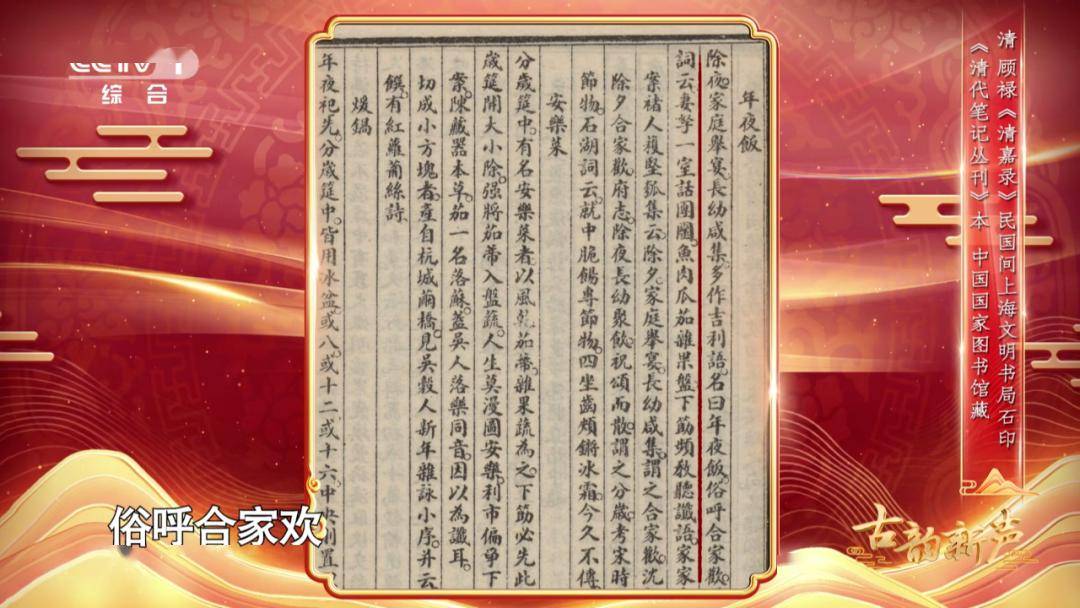 CCTV 1
综合
清 顾禄《清嘉录》民国间上海文明书局石印
《清代笔记丛刊》本 中国国家图书馆藏
年夜飯
除夜。家庭舉宴。長幼咸集。多作吉利語。名曰年夜飯。俗呼合家歡。
詞云。妻孥一室話團圞。魚肉瓜茄雜果盤。下筯頻教聽讖語。家家
案褚人穫堅瓠集云。除夕。家庭舉宴。長幼咸集。謂之合家歡。沈
除夕合家歡。府志。除夜長幼聚飲。祝頌而散。謂之分歲。考宋時
節物。石湖詞云。就中脆餳專節物。四坐齒頰鏘冰霜。今久不傳
安樂菜
分歲筵中。有名安樂菜者。以風乾茄蒂。雜果蔬為之。下筯必先此
歲筵開大小除。强將茄蒂入盤蔬。人生莫漫圖安樂。利市偏爭下
案。陳藏器本草。茄一名落蘇。蓋吳人落樂同音。因以為讖耳。
切成小方塊者。產自杭城橋。見吳穀人新年雜詠小序。并云
饌。有紅蘿蔔絲詩。
煖鍋
年夜祀先。分歲筵中。皆用冰盆。或八。或十二。或十六。中央則置
俗呼合家欢
古韵新声